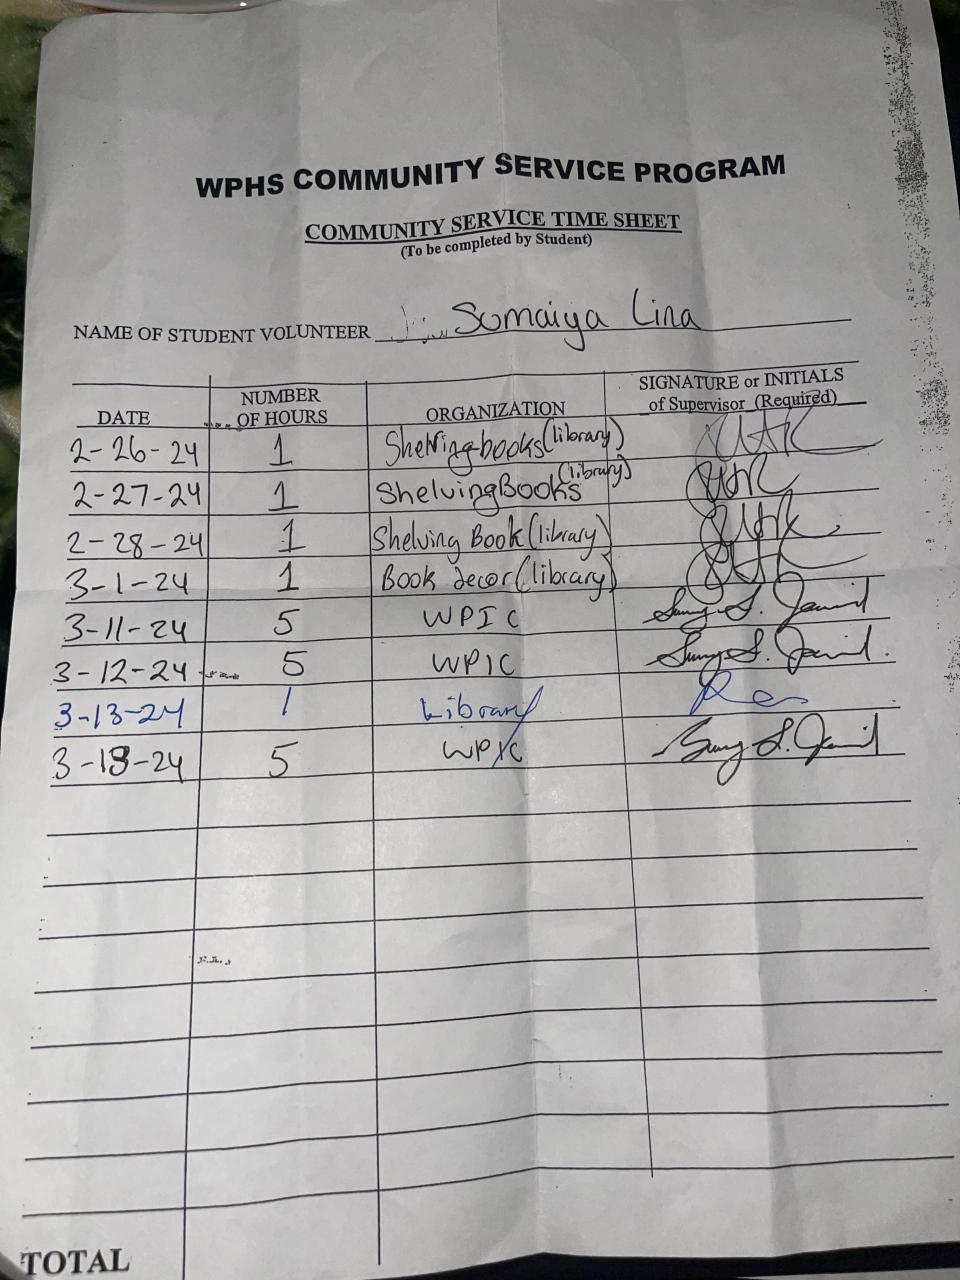 WPHS COMMUNITY SERVICE PROGRAM
COMMUNITY SERVICE TIME SHEET
(To be completed by Student)
NAME OF STUDENT VOLUNTEER Sumaiya Lina
DATE NUMBER OF HOURS ORGANIZATION SIGNATURE or INITIALS of Supervisor (Required)
2-26-24 1 Shelving books (library)
2-27-24 1 Shelving Books (library)
2-28-24 1 Shelving Book (library)
3-1-24 1 Book decor (library)
3-11-24 5 WPIC
3-12-24 5 WPIC
3-13-24 1 Library
3-13-24 5 WPIC
TOTAL